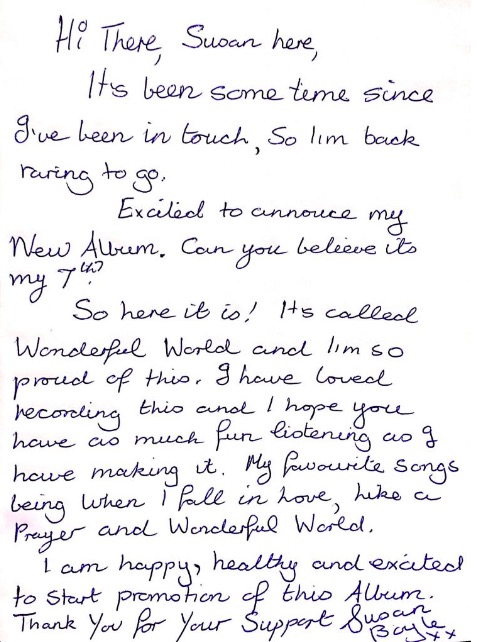 Hi There, Susan here,
It's been some time since
I've been in touch, So I'm back
raring to go.
Excited to annouce my
New Album. Can you believe its
my 7th?
So here it is! It's called
Wonderful World and I'm so
proud of this. I have loved
recording this and I hope you
have as much fun listening as I
have making it. My favourite songs
being When I fall in Love, Like a
Prayer and Wonderful World.
I am happy, healthy and excited
to start promotion of this Album.
Thank You for Your Support Susan
Boyle xx